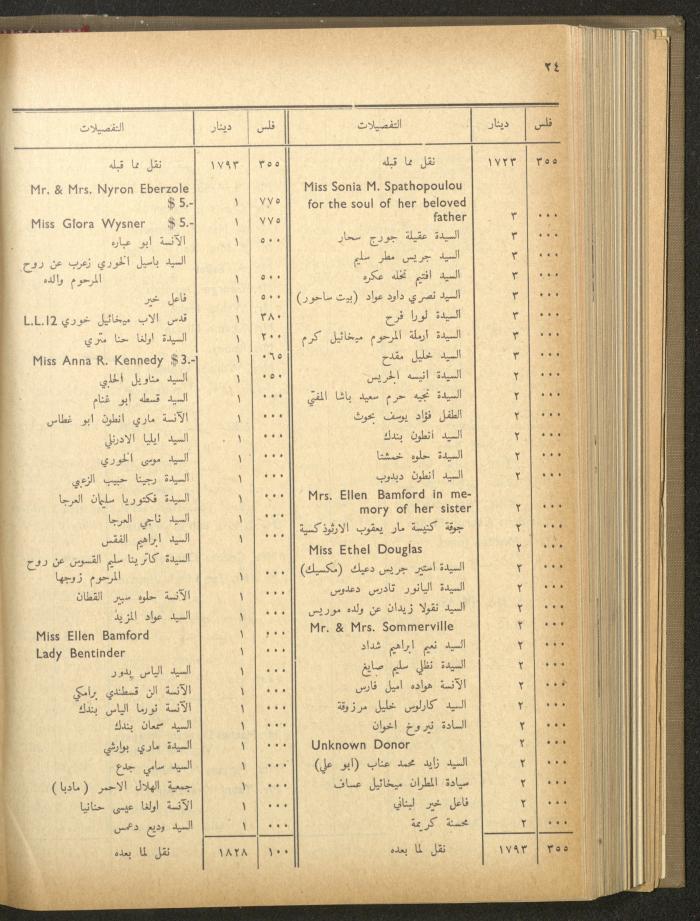 ٢٤
فلس دينار التفصيلات
٣٥٥ ١٧٢٣ نقل مما قبله
Miss Sonia M. Spathopoulou
for the soul of her beloved
father ٣ ٠٠٠
السيدة عقيلة جورج سحار ٣ ٠٠٠
السيد جريس مطر سليم ٣ ٠٠٠
السيد افتيم نخله عكره ٣ ٠٠٠
السيد نصري داود عواد (بيت ساحور) ٣ ٠٠٠
السيدة لورا فرح ٣ ٠٠٠
السيدة ارملة المرحوم ميخائيل كرم ٣ ٠٠٠
السيد خليل مقدح ٣ ٠٠٠
السيدة انيسه الجريس ٢ ٠٠٠
السيدة نجيه حرم سعيد باشا المفتي ٢ ٠٠٠
الطفل فؤاد يوسف بحوث ٢ ٠٠٠
السيد انطون بندك ٢ ٠٠٠
السيدة حلوه خمشتا ٢ ٠٠٠
السيد انطون دبدوب ٢ ٠٠٠
Mrs. Ellen Bamford in me-
mory of her sister ٢ ٠٠٠
جوقة كنيسة مار يعقوب الارثوذكسية ٢ ٠٠٠
Miss Ethel Douglas ٢ ٠٠٠
السيدة استير جريس دعيك (مكسيك) ٢ ٠٠٠
السيدة اليانور تادرس دعدوس ٢ ٠٠٠
السيد نقولا زيدان عن ولده موريس ٢ ٠٠٠
Mr. & Mrs. Sommerville ٢ ٠٠٠
السيد نعيم ابراهيم شداد ٢ ٠٠٠
السيدة نظلي سليم صايغ ٢ ٠٠٠
الآنسة هواده اميل فارس ٢ ٠٠٠
السيد كارلوس خليل مرزوقة ٢ ٠٠٠
السادة نيروخ اخوان ٢ ٠٠٠
Unknown Donor ٢ ٠٠٠
السيد زايد محمد عناب (ابو علي) ٢ ٠٠٠
سيادة المطران ميخائيل عساف ٢ ٠٠٠
فاعل خير لبناني ٢ ٠٠٠
محسنة كريمة ٢ ٠٠٠
٣٥٥ ١٧٩٣ نقل لما بعده
فلس دينار التفصيلات
٣٥٥ ١٧٩٣ نقل مما قبله
Mr. & Mrs. Nyron Eberzole
$ 5.- ١ ٧٧٥
Miss Glora Wysner $ 5.- ١ ٧٧٥
الآنسة ابو عباره ١ ٥٠٠
السيد باسيل الخوري زعرب عن روح
المرحوم والده ١ ٥٠٠
فاعل خير ١ ٥٠٠
قدس الاب ميخائيل خوري L.L.12 ١ ٣٨٠
السيدة اولغا حنا متري ١ ٢٠٠
Miss Anna R. Kennedy $ 3.- ١ ٠٦٥
السيد مناويل الحلبي ١ ٠٥٠
السيد قسطه ابو غنام ١ ٠٠٠
الآنسة ماري انطون ابو غطاس ١ ٠٠٠
السيد ايليا الادرنلي ١ ٠٠٠
السيد موسى الخوري ١ ٠٠٠
السيدة رجينا حبيب الزعبي ١ ٠٠٠
السيدة فكتوريا سليمان العرجا ١ ٠٠٠
السيد ناجي العرجا ١ ٠٠٠
السيد ابراهيم الفقس ١ ٠٠٠
السيدة كاترينا سليم القسوس عن روح
المرحوم زوجها ١ ٠٠٠
الآنسة حلوه سبير القطان ١ ٠٠٠
السيد عواد المزيد ١ ٠٠٠
Miss Ellen Bamford ١ ٠٠٠
Lady Bentinder ١ ٠٠٠
السيد الياس بدور ١ ٠٠٠
الآنسة الن قسطندي برامكي ١ ٠٠٠
الآنسة نورما الياس بندك ١ ٠٠٠
السيد سمعان بندك ١ ٠٠٠
السيدة ماري بوارشي ١ ٠٠٠
السيد سامي جدع ١ ٠٠٠
جمعية الهلال الاحمر (مادبا) ١ ٠٠٠
الآنسة اولغا عيسى حنانيا ١ ٠٠٠
السيد وديع دعمس ١ ٠٠٠
١٠٠ ١٨٢٨ نقل لما بعده